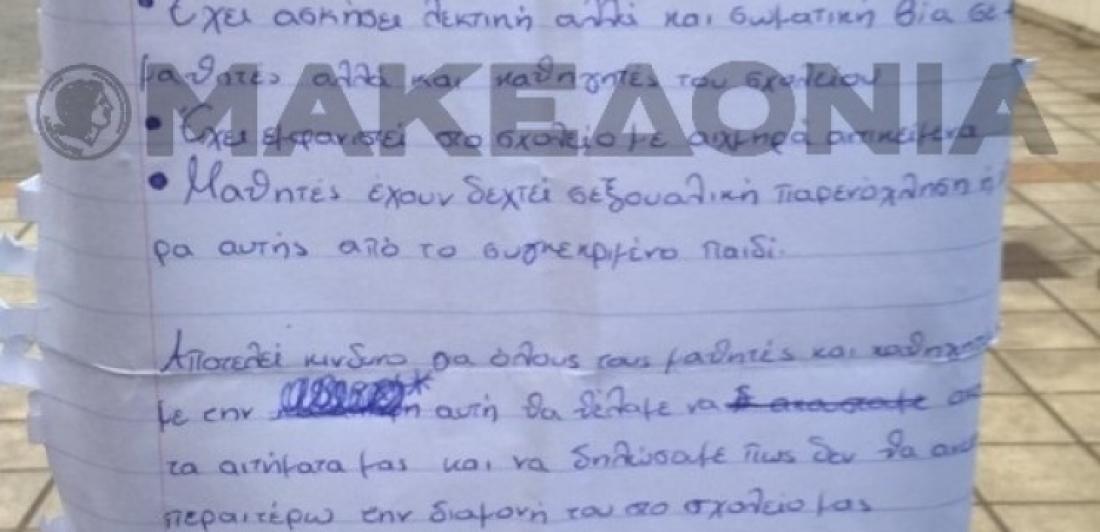 • Έχει ασκήσει λεκτική αλλά και σωματική βία σε
μαθητές αλλά και καθηγητές του σχολείου
ΜΑΚΕΔΟΝΙΑ
• Έχει εμφανιστεί στο σχολείο με αιχμηρά αντικείμενα
• Μαθητές έχουν δεχτεί σεξουαλική παρενόχληση ή
ρα αυτής από το συγκεκριμένο παιδί.
Αποτελεί κίνδυνο για όλους τους μαθητές και
με την * αυτή θα θέλαμε να
τα αιτήματα μας και να δηλώσαμε πως δεν θα
περαιτέρω την διαμονή του στο σχολείο μας